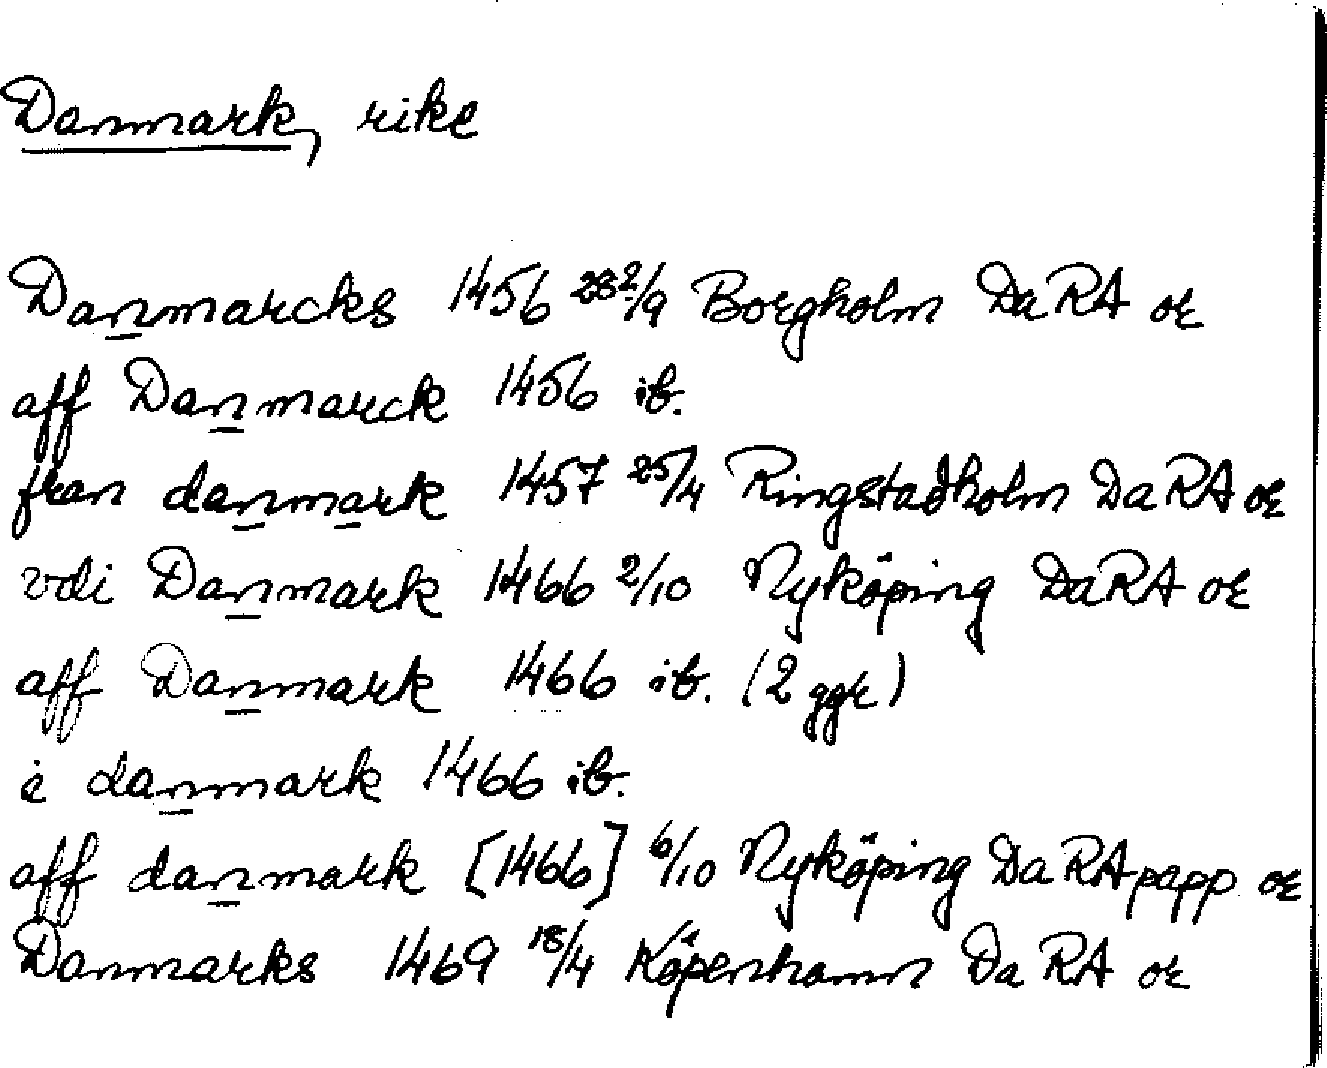 Danmark, rike
Danmarcks 1456 28?/9 Borgholm DaRA or
aff Danmarck 1456 ib.
fran danmark 1457 25/4 Ringstadholm DaRA or
vdi Danmark 1466 2/10 Nyköping DaRA or
aff Danmark 1466 ib. (2 ggr)
i danmark 1466 ib.
aff danmark [1466] 6/10 Nyköping DaRApapp or
Danmarks 1469 18/4 Köpenhamn DaRA or